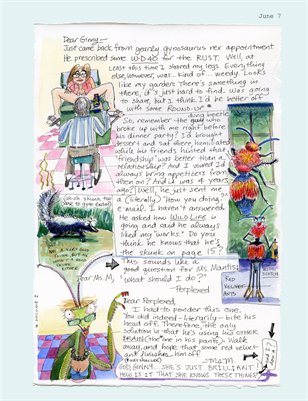 June 7
Dear Ginny—
Just came back from
rex appointment
He prescribed some WD40 for the RUST. Well, at
least this time I shaved my legs. Everything
else, however, was... kind of... weedy. Looks
like my garden: There's something in
there, it's just hard to find. Was going
to share, but I think I'd be better off
with some ROUND-UP.
So, remember the dung beetle
who
broke up with me right before
his dinner party? I'd brought
dessert and sat there, humiliated
while his friends insisted that
"friendship" was better than a
relationship? And I vowed I'd
always bring appetizers from
then on? And it was 4 years
ago? Well, he just sent me
a (literally) "How you doing?"
e-mail. I haven't answered.
He asked how WILD LIFE is
going and said he always
liked my "works." Do you
think he knows that he's
the skunk on page 15?
This sounds like a
good question for Ms. Mantis:
Dear Ms. M,
"What should I do?"
—Perplexed
Dear Perplexed,
I had to ponder this one.
You did indeed - literarily - bite his
head off. Therefore, the only
solution is that he's using his other
BRAIN (the one in his pants). Walk
away, and hope that some red velvet
ant
him off
—M&M
GOD, GINNY... SHE'S JUST BRILLIANT
HOW IS IT THAT SHE KNOWS THESE THINGS?
RED
VELVET
ANTS